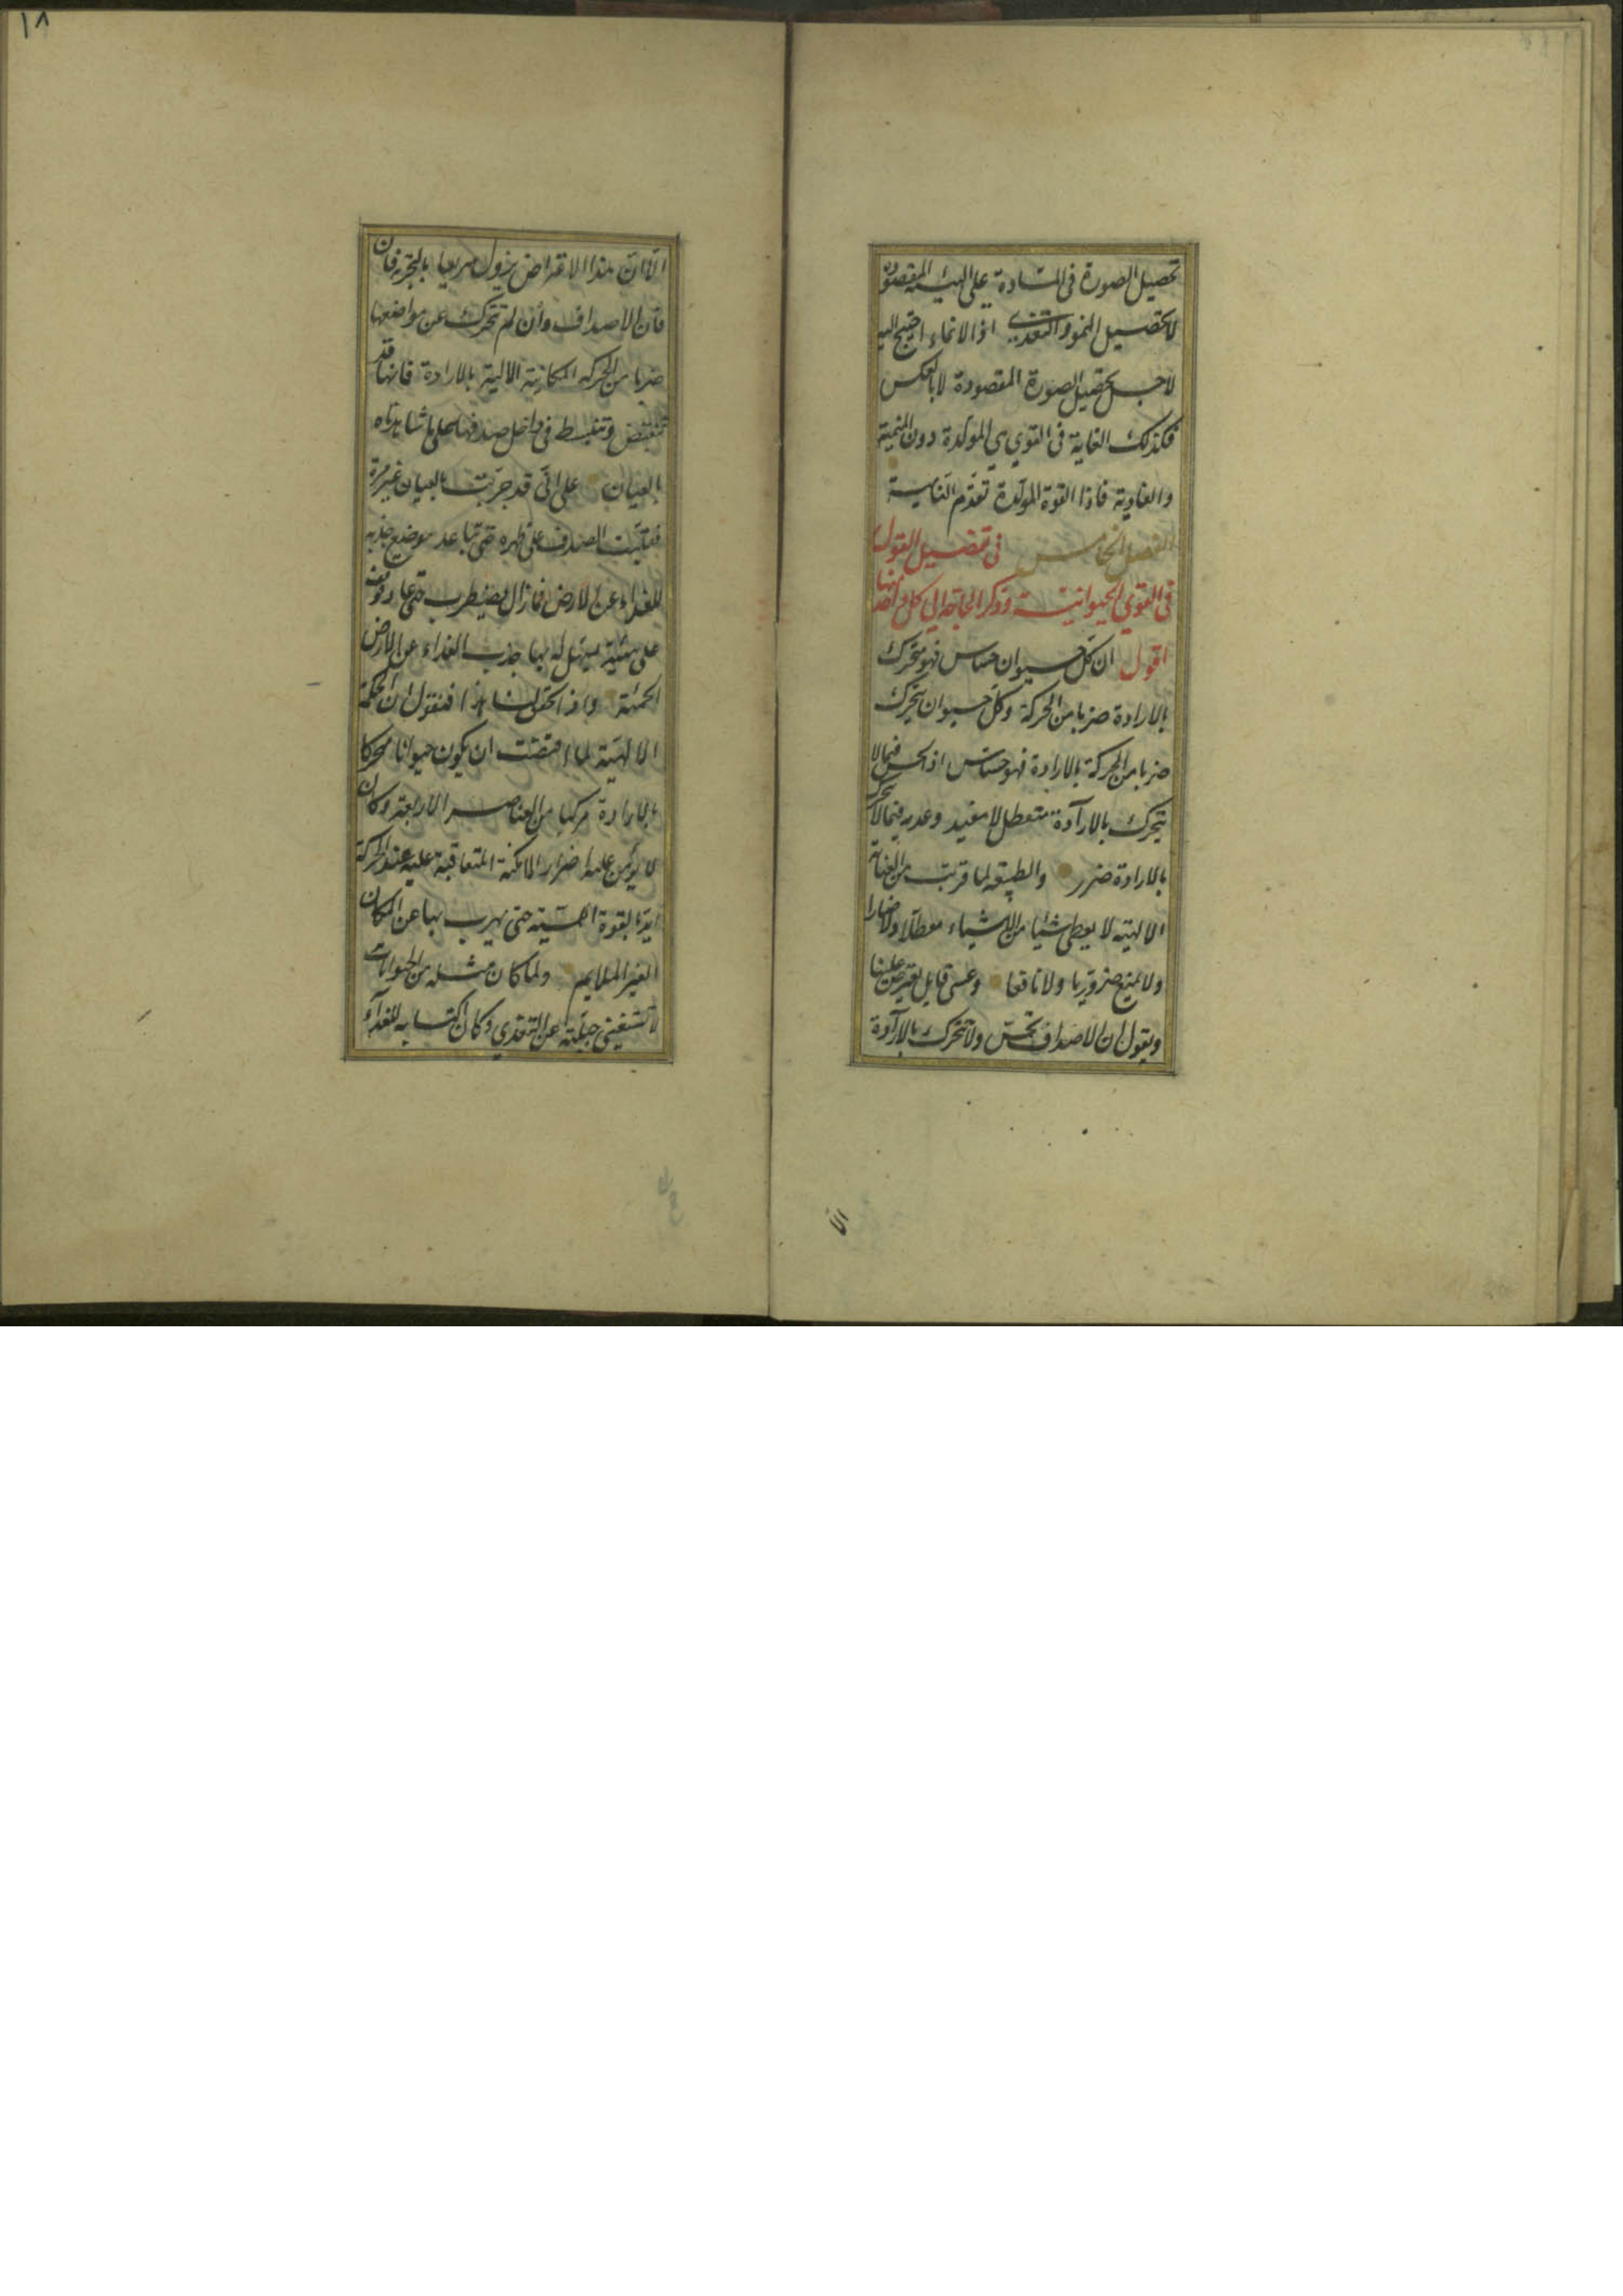 تحصيل الصورة فى المادة على الهيئة المقصودة
لا تحصيل النمو والتغذى اذ الانماء احتيج اليه
لاجل تحصيل الصورة المقصودة لا بالعكس
فكذلك الغاية فى القوى هى المولدة دون المنمية
والغاذية فاذا القوة المولدة تقدم
الفصل الخامس فى تفصيل القول
فى القوى الحيوانية وذكر الحاجة الى كل واحد منها
اقول ان كل حيوان حساس فهو متحرك
بالارادة ضربا من الحركة وكل حيوان يتحرك
ضربا من الحركة بالارادة فهو حساس اذ الحس فيما لا
يتحرك بالارآدة متعطل لا مفيد وعدمه فيما لا يتحرك
بالارادة ضرر والطبيعة لما قرنت من العناية
الالهية لا يعطى شيئا من الاشياء معطلا ولا ضارا
ولا يمنع ضروريا ولا نافعا وعسى قايل يعترض علينا
ويقول ان الاصداف تحس ولا تتحرك بالارآدة
الا
١٨
الا ان هذا الاعتراض يزول سريعا بالتجربة فان
فان الاصداف وان لم تتحرك عن مواضعها
ضربا من الحركة المكانية الالية بالارادة فانها قد
تنقبض وتنبسط فى داخل صدفها على ما شاهدناه
بالعيان على انى قد جربت بالعيان غير مرة
فقلبت الصدف على ظهره حتى تباعد موضع جذبه
للغذاء عن الارض فما زال يضطرب حتى عاد
على هيئة يسهل له بها جذب الغذاء عن الارض
الحمئة واذ تحقق لنا هذا فنقول ان الحكمة
الالهية لما اقتضت ان يكون حيوانا متحركا
بالارادة مركبا من العناصر الاربعة وكان
لا يؤمن عليه اضرار الامكنة المتعاقبة عليه عند الحركة
ايد بالقوة اللمسية حتى يهرب بها عن المكان
الغير الملايم ولما كان مثله من الحيوانات
لا تستغنى جبلته عن التغذى وكان اكتسابه للغذآء